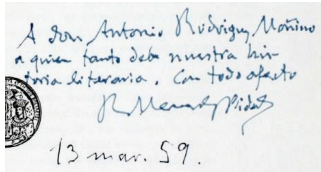 A don Antonio Rodríguez Moñino
a quien tanto debe nuestra his
toria literaria. Con todo afecto
R. Menéndez Pidal
13 mar. 59.